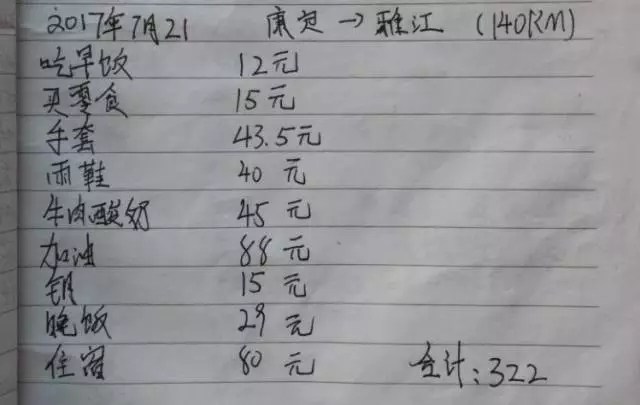 2017年7月21 康定→雅江 (140KM)
吃早饭 12元
买零食 15元
手套 43.5元
雨鞋 40元
牛肉酸奶 45元
加油 88元
15元
晚饭 29元
住宿 80元 合计:322